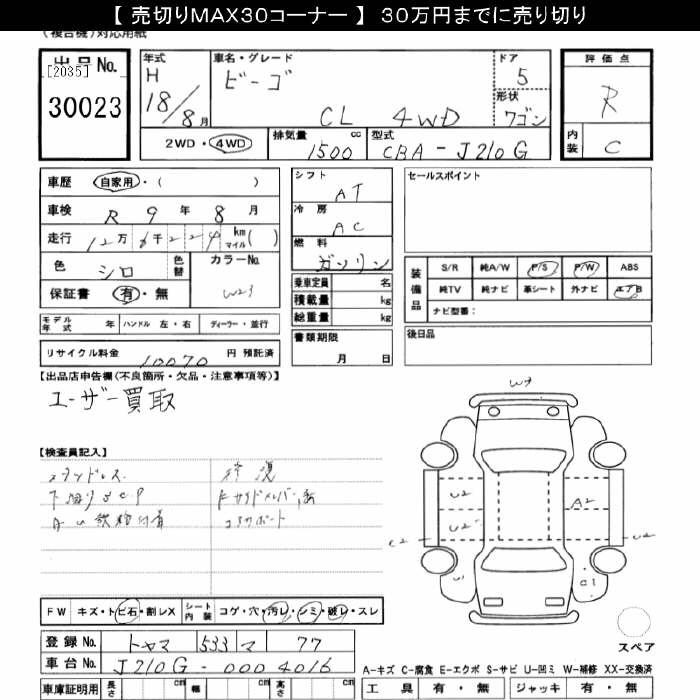 【 売切りMAX30コーナー 】 30万円までに売り切り
(複合機)対応用紙
出品No.
[2035]
30023
年式
H
18/8月
車名・グレード
ビーゴ
CL 4WD
ドア
5
形状
ワゴン
2WD・4WD
排気量 cc
1500
型式
CBA-J210G
評価点
R
内装
C
車歴 自家用・( )
車検 R 9 年 8 月
走行 12万 千 km マイル( )
色 シロ 色替
カラーNo.
W23
保証書 有・無
モデル年式 年 ハンドル 左・右 ディーラー・並行
リサイクル料金 10070 円 預託済
シフト
AT
冷房
AC
燃料
ガソリン
乗車定員 名
積載量 kg
総重量 kg
書類期限
月 日
セールスポイント
装備品
S/R 純A/W P/S P/W ABS
純TV 純ナビ 革シート 外ナビ エアB
ナビ型番:
後日品
【出品店申告欄(不良箇所・欠品・注意事項等)】
ユーザー買取
【検査員記入】
スタンドレス
修復
コアサポート
W2
U2
U2
A2
U2
C1
FW キズ・トビ石・割レX シート内装 コゲ・穴・汚レ・シミ・破レ・スレ
登録No. トヤマ 533 マ 77
車台No. J210G-0004016
車庫証明用 長さ cm 幅 cm 高さ cm
スペア
A-キズ C-腐食 E-エクボ S-サビ U-凹ミ W-補修 XX-交換済
工具 有・無 ジャッキ 有・無